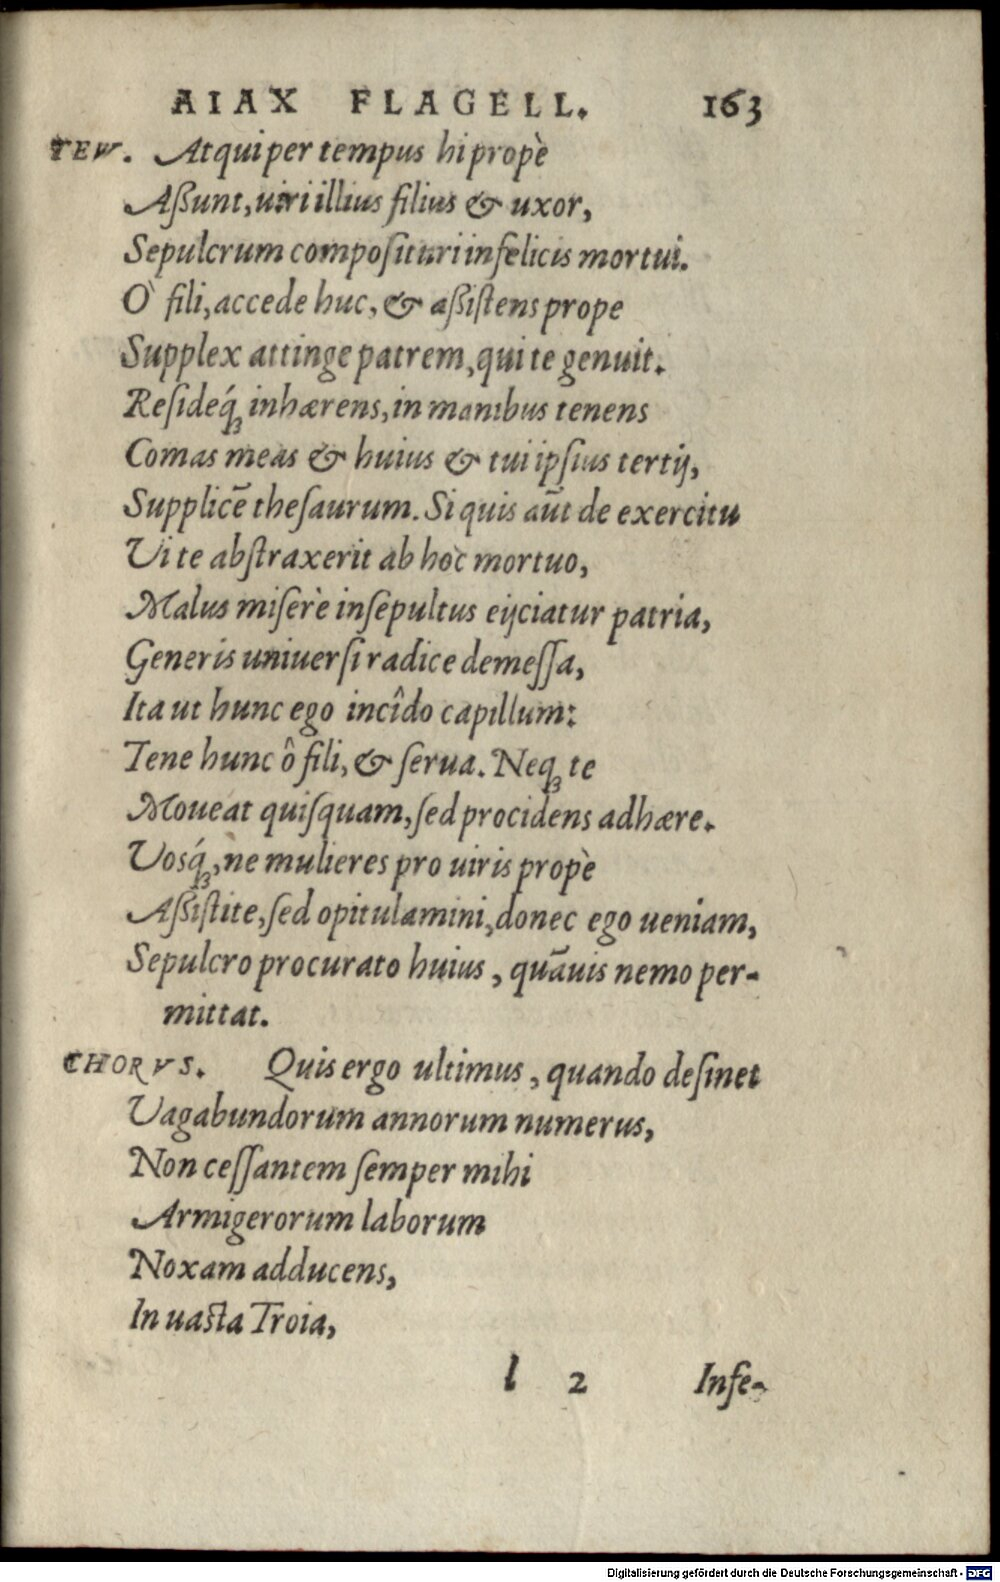 AIAX FLAGELL. 163
TEV. Atqui per tempus hi propè
Aßunt, uiri illius filius & uxor,
Sepulcrum composituri infelicis mortui.
Ò fili, accede huc, & aßistens prope
Supplex attinge patrem, qui te genuit.
Resideq́ꝫ inhærens, in manibus tenens
Comas meas & huius & tui ipsius tertij,
Supplicē thesaurum. Si quis aūt de exercitu
Vi te abstraxerit ab hoc mortuo,
Malus miserè insepultus eijciatur patria,
Generis uniuersi radice demessa,
Ita ut hunc ego incîdo capillum:
Tene hunc ô fili, & serua. Neqꝫ te
Moueat quisquam, sed procidens adhære.
Vosq́ꝫ, ne mulieres pro uiris propè
Aßistite, sed opitulamini, donec ego ueniam,
Sepulcro procurato huius, quāuis nemo per-
mittat.
CHORVS. Quis ergo ultimus, quando desinet
Vagabundorum annorum numerus,
Non cessantem semper mihi
Armigerorum laborum
Noxam adducens,
In uasta Troia,
l 2 Infe-
Digitalisierung gefördert durch die Deutsche Forschungsgemeinschaft - DFG